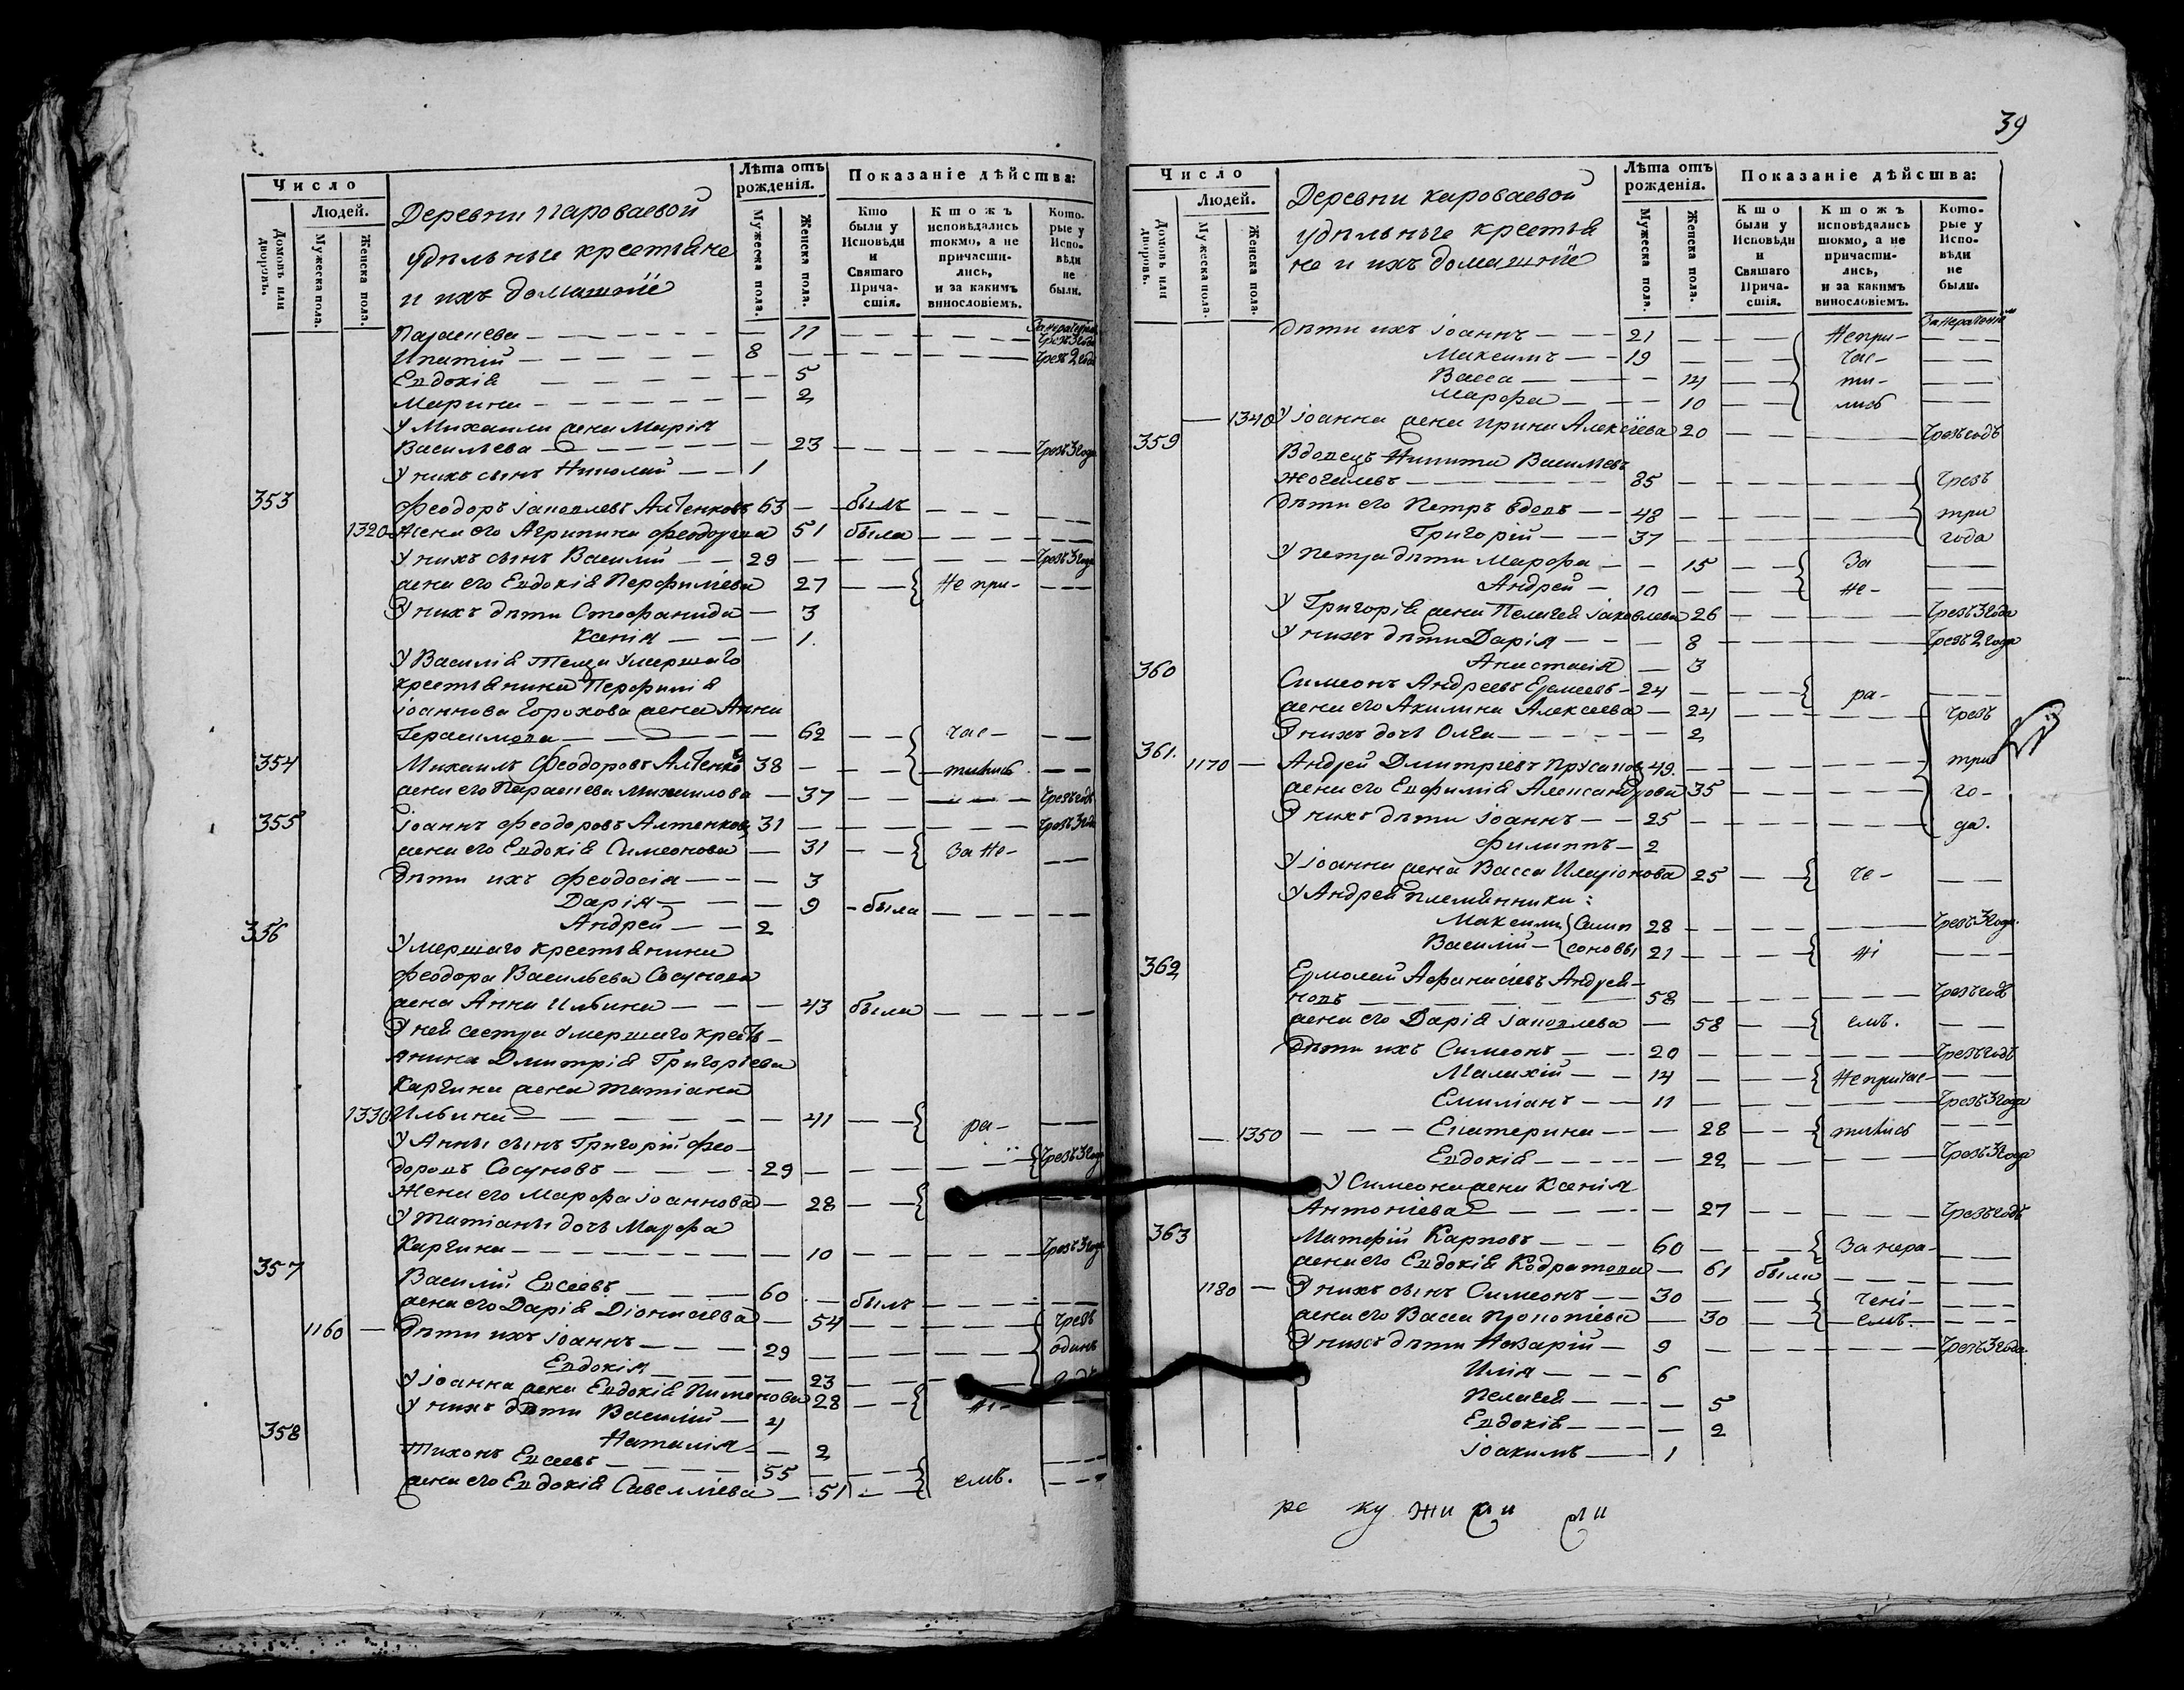 Число
Людей.
Домовъ или дворовъ.
Мужеска пола.
Женска пола.
Деревни Кароваевой
удѣльныe крестьяне
и ихъ домашнїе
Лѣта отъ рожденія.
Мужеска пола.
Женска пола.
Показаніе дѣйства:
Кто были у Исповѣди и Святаго Причастія.
Ктожъ исповѣдались токмо, а не причастились, и за какимъ винословіемъ.
Которые у Исповѣди не были.
Параскева 11 Чрезъ 3 года
Ипатій 8 Чрезъ 2 года
Евдокія 5
Марина 2
У Михаила жена Марія
Васильева 23 Чрезъ 3 года
У нихъ сынъ Николай 1
353 Феодоръ Іаковлевъ Алтенковъ 63 былъ
1320 Жена его Агрипина Феодорова 51 была
У нихъ сынъ Василій 29 Чрезъ 3 года
жена его Евдокія Перфиліева 27 Не при-
У нихъ дѣти Стефанида 3
Ксенія 1.
У Василія теща умершаго
крестьянина Перфилія
Іоаннова Горохова жена Анна
Герасимова 62 час-
354 Михаилъ Феодоровъ Алтенковъ 38 тились
жена его Параскева Михаилова 37 Чрезъ годъ
355 Іоаннъ Феодоровъ Алтенковъ 31 Чрезъ 3 года
жена его Евдокія Симеонова 31 За не-
Дѣти ихъ Феодосія 3
Дарія 9 была
Андрей 2
356 Умершаго крестьянина
Феодора Васильева Сосунова
жена Анна Ильина 43 была
У ней сестра умершаго кресть-
янина Димитрія Григорьева
Каргина жена Татіана
1330 Ильина 41 ра-
У Анны сынъ Григорій Фео-
доровъ Сосуновъ 29 Чрезъ 3 года
Жена его Марфа Іоаннова 28
У Татіаны дочь Марфа
Каргина 10 Чрезъ 3 года
357 Василій Евсеевъ 60 былъ
жена его Дарія Діонисіева 54 Чрезъ
1160 Дѣти ихъ Іоаннъ 29 одинъ
Евдокія 23
У Іоанна жена Евдокія Пименова 28 ні-
У нихъ дѣти Василій 4
Наталія 2
358 Тихонъ Евсеевъ 55
жена его Евдокія Савелліева 51 емъ.
39
Число
Людей.
Домовъ или дворовъ.
Мужеска пола.
Женска пола.
Деревни Кароваевой
удѣльныe крестья
не и ихъ домашнїе
Лѣта отъ рожденія.
Мужеска пола.
Женска пола.
Показаніе дѣйства:
Кто были у Исповѣди и Святаго Причастія.
Ктожъ исповѣдались токмо, а не причастились, и за какимъ винословіемъ.
Которые у Исповѣди не были.
Дѣти ихъ Іоаннъ 21 Не при-
Максимъ 19 час-
Васса 14 ти-
Марфа 10 лись
1340 У Іоанна жена Ирина Алексіева 20 Чрезъ годъ
359 Вдовецъ Никита Васильевъ
85 Чрезъ
Дѣти его Петръ вдовъ 48 три
Григорій 37 года
У Петра дѣти Марфа 15 За
Андрей 10 не-
У Григорія жена Пелагея Іаковлева 26 Чрезъ 3 года
У нихъ дѣти Дарія 8 Чрезъ 2 года
Анастасія 3
360 Симеонъ Андреевъ Еремеевъ 24 ра-
жена его Акилина Алексеева 24 Чрезъ
У нихъ дочь Олга 2
361. 1170 Андрей Дмитріевъ Прусаков 49. три
жена его Евфимія Александрова 35 го-
У нихъ дѣти Іоаннъ 25 да.
Филиппъ 2
У Іоанна жена Васса Иларіонова 25 че-
У Андрея племянники:
Максимъ Самп 28 Чрезъ 3 года.
Василій соновы 21 ні
362 Ермолай Афанасіевъ Андрея-
новъ 58 Чрезъ годъ
жена его Дарія Іаковлева 58 емъ.
Дѣти ихъ Симеонъ 20 Чрезъ годъ
Малахій 14 Не причас-
Емиліанъ 11 Чрезъ 3 года
1350 Екатерина 28 тились
Евдокія 22 Чрезъ 3 года
У Симеона жена Ксенія
Антоніева 27 Чрезъ годъ
363 Матфій Карповъ 60 За нера-
жена его Евдокія Кодратова 61 была
1180 У нихъ сынъ Симеонъ 30 чені-
жена его Васса Прокопіева 30 емъ.
У нихъ дѣти Назарій 9 Чрезъ 3 года.
Илія 6
Пелагея 5
Евдокія 2
Іоакимъ 1